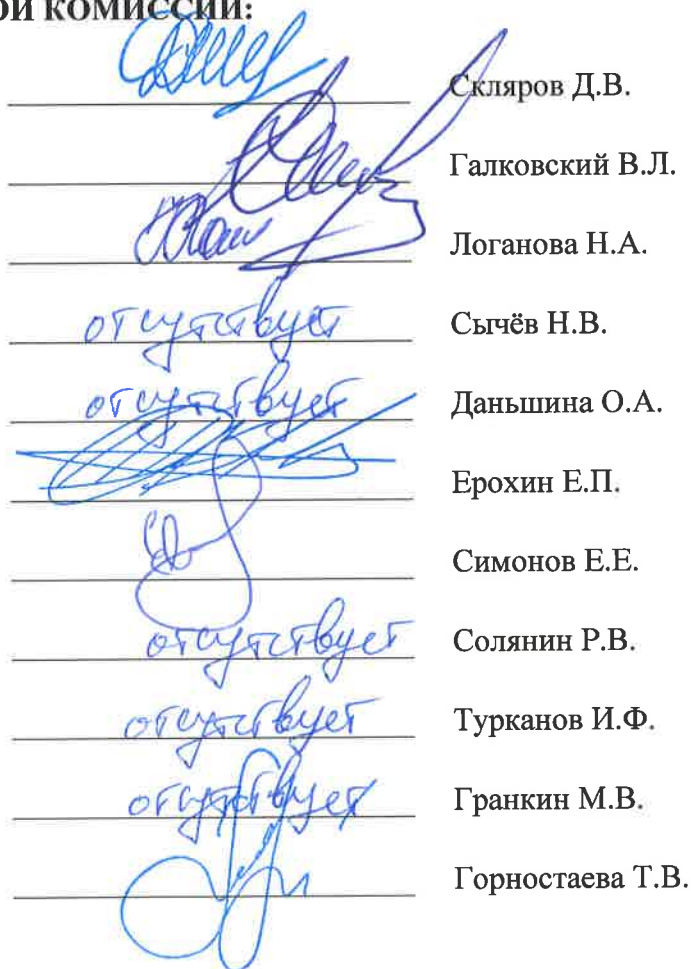 ОЙ КОМИССИИ:
Скляров Д.В.
Галковский В.Л.
Логанова Н.А.
отсутствует Сычёв Н.В.
отсутствует Даньшина О.А.
Ерохин Е.П.
Симонов Е.Е.
отсутствует Солянин Р.В.
отсутствует Турканов И.Ф.
отсутствует Гранкин М.В.
Горностаева Т.В.